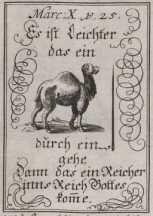 Marc X. ỹ. 25.
Es ist Leichter
das ein
dürch ein
gehe
Dann das ein Reicher
inns Reich Gottes
kome.